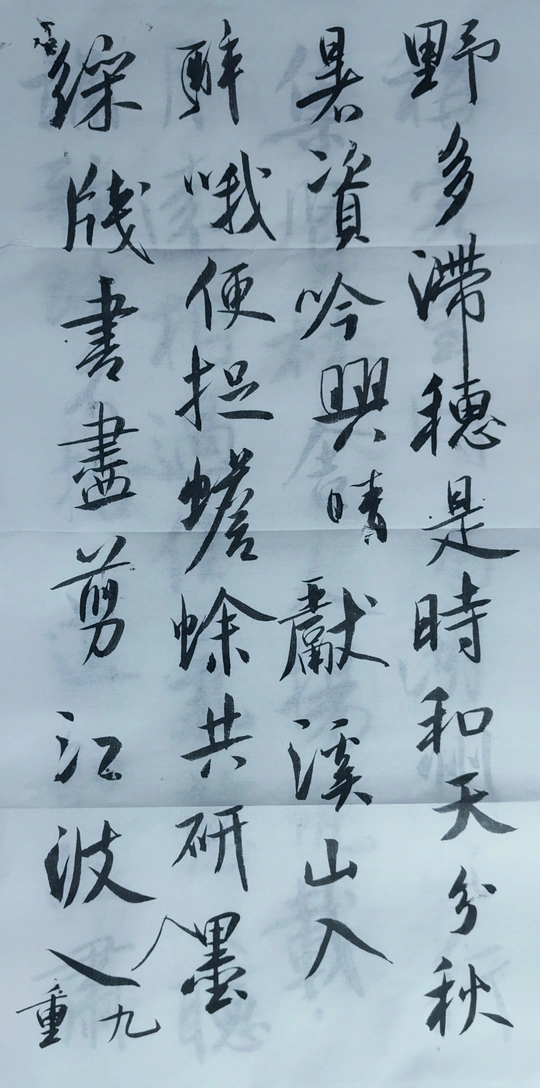 野多滯穗是時和天分秋
暑資吟興晴獻溪山入
醉哦便捉蟾蜍共研墨
綵牋書盡剪江波
重九